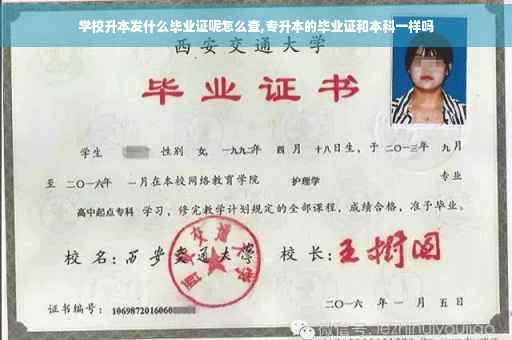 学校升本发什么毕业证呢怎么查,专升本的毕业证和本科一样吗
西安交通大学
毕业证书
学生 性别 女, 一九九二年 四月 十八日生, 于 二〇一三年 九月
至 二〇一六年 一月在本校网络教育学院 护理学 专业
高中起点专科 学习, 修完教学计划规定的全部课程, 成绩合格, 准予毕业。
校名: 西安交通大学 校长: 王树国
西安交通大学
证书编号: 1069872016060
二〇一六年 一月五日
微信号: jezhinuiyoujiao